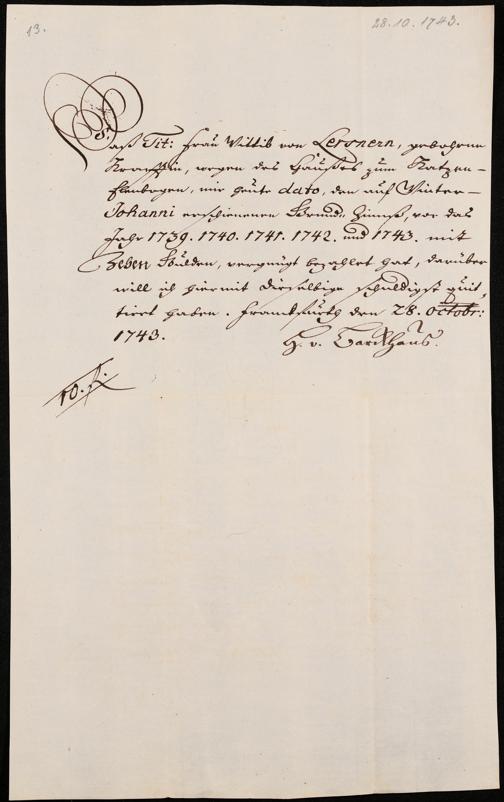 13.
28.10.1743.
Daß Tit: Frau Wittib von Lersnern, gebohrne
wegen des Haußes zum Katzen-
Elenbogen, mir heute dato, den auf Winter-
Johanni erschienenen Grund-Zinnß, vor das
Jahr 1739. 1740. 1741. 1742. und 1743. mit
Zehen Gulden, vergnügt bezahlet hat, darüber
will ich hiermit dieselbige schuldigst quit-
tiert haben. Franckfurth den 28. Octobr:
1743.
H. v. Barckhaus.
10. f.